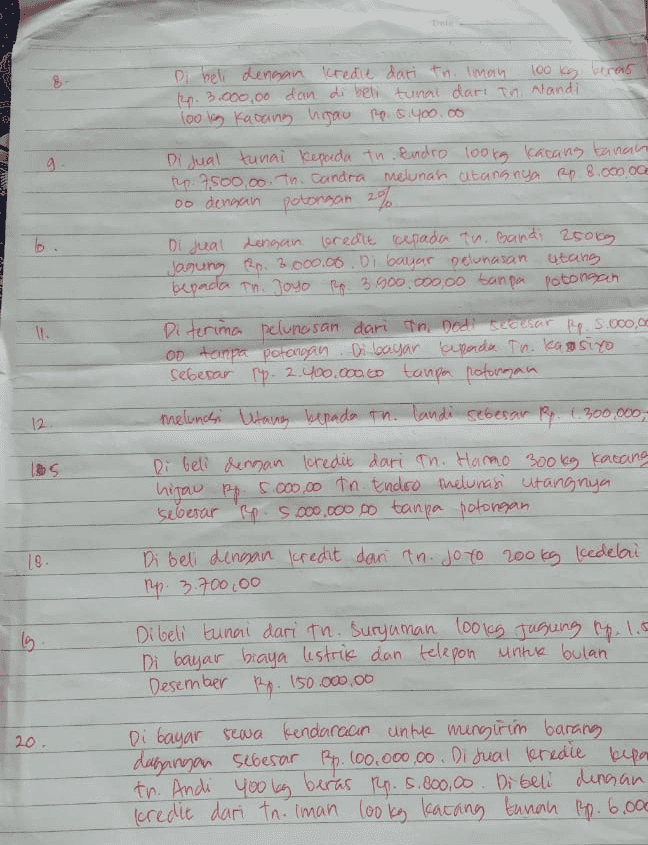 Date
8. Di beli dengan kredit dari Tn. Iman 100 kg beras
Rp. 3.000,00 dan di beli tunai dari Tn. Nandi
100 kg Kacang hijau Rp. 5.400.00
9. Di jual tunai kepada tn. Endro 100 kg kacang tanah
Rp. 7500,00. Tn. Candra melunasi utangnya Rp 8.000,00
00 dengan potongan 2%
6. Di jual dengan kredit kepada Tn. Bandi 250kg
Jagung Rp. 3.000.00. Di bayar pelunasan utang
kepada Tn. Joyo Rp. 3.500.000,00 tanpa potongan
11. Di terima pelunasan dari Tn. Dodi sebesar Rp. 5.000,0
00 tanpa potongan. Di bayar kepada Tn. Kasiyo
sebesar Rp. 2.400.000,00 tanpa potongan
12. melunasi Utang kepada Tn. Landi sebesar Rp. 1.300.000,
15 Di beli dengan kredit dari Tn. Harno 300 kg kacang
hijau Rp. 5.000,00 Tn Endro melunasi utangnya
sebesar Rp. 5.000.000,00 tanpa potongan
18. Di beli dengan kredit dari Tn. Joyo 200 kg kedelai
Rp. 3.700,00
19. Dibeli tunai dari Tn. Suryaman 100 kg Jagung Rp. 1.5
Di bayar biaya listrik dan telepon untuk bulan
Desember Rp. 150.000,00
20. Di bayar sewa kendaraan untuk mengirim barang
dagangan sebesar Rp. 100.000,00. Di jual kredit kepa
tn. Andi 400 kg beras Rp. 5.800,00. Di beli dengan
kredit dari Tn. Iman 100 kg kacang tanah Rp. 6.000